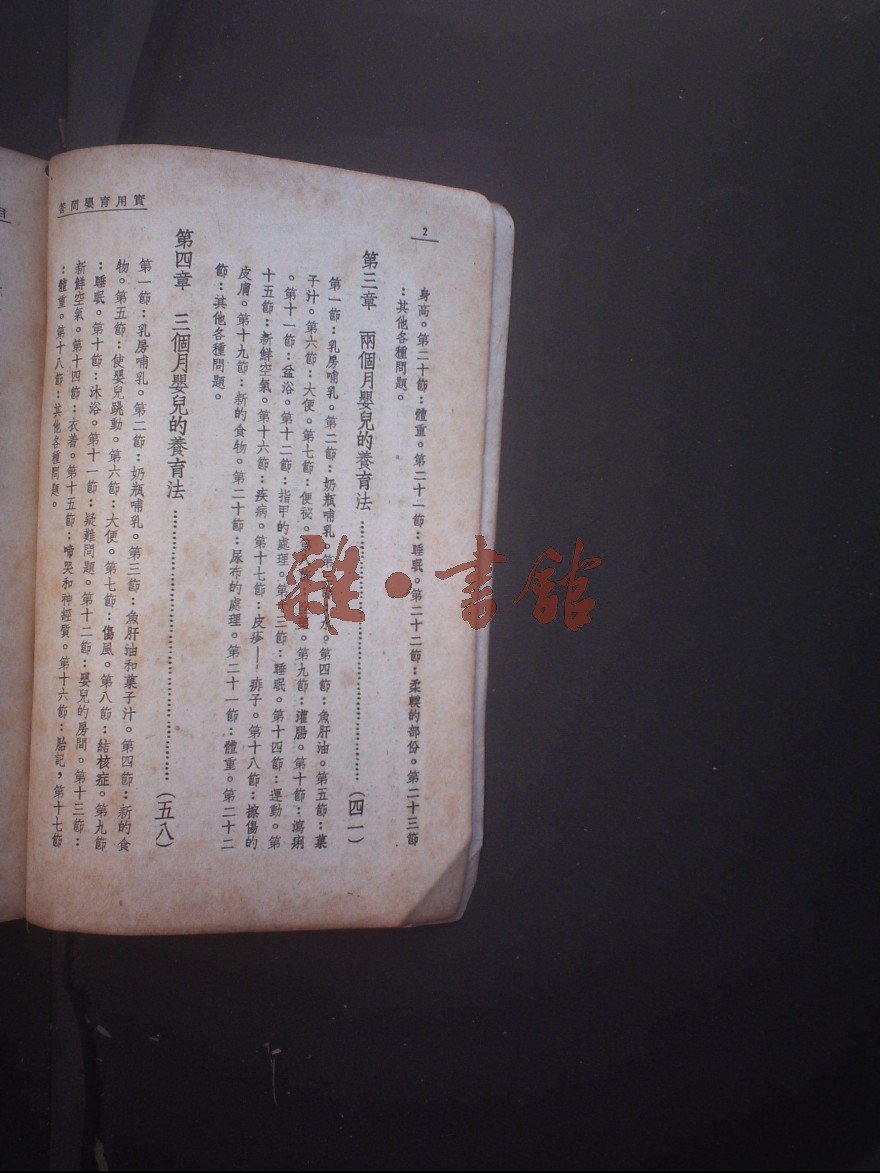 實用育嬰問答
2
身高。第二十節：體重。第二十一節：睡眠。第二十二節：柔輭的部份。第二十三節
：其他各種問題。
第三章　兩個月嬰兒的養育法……………………（四一）
第一節：乳房哺乳。第二節：奶瓶哺乳。第 水。第四節：魚肝油。第五節：菓
子汁。第六節：大便。第七節：便祕。 第九節：灌腸。第十節：瀉痢
。第十一節：盆浴。第十二節：指甲的處理。第十三節：睡眠。第十四節：運動。第
十五節：新鮮空氣。第十六節：疾病。第十七節：皮疹——痱子。第十八節：擦傷的
皮膚。第十九節：新的食物。第二十節：尿布的處理。第二十一節：體重。第二十二
節：其他各種問題。
第四章　三個月嬰兒的養育法……………………（五八）
第一節：乳房哺乳。第二節：奶瓶哺乳。第三節：魚肝油和菓子汁。第四節：新的食
物。第五節：使嬰兒跳動。第六節：大便。第七節：傷風。第八節：結核症。第九節
：睡眠。第十節：沐浴。第十一節：疑難問題。第十二節：嬰兒的房間。第十三節：
新鮮空氣。第十四節：衣着。第十五節：啼哭和神經質。第十六節：胎記，第十七節
：體重。第十八節：其他各種問題。
雜·書館